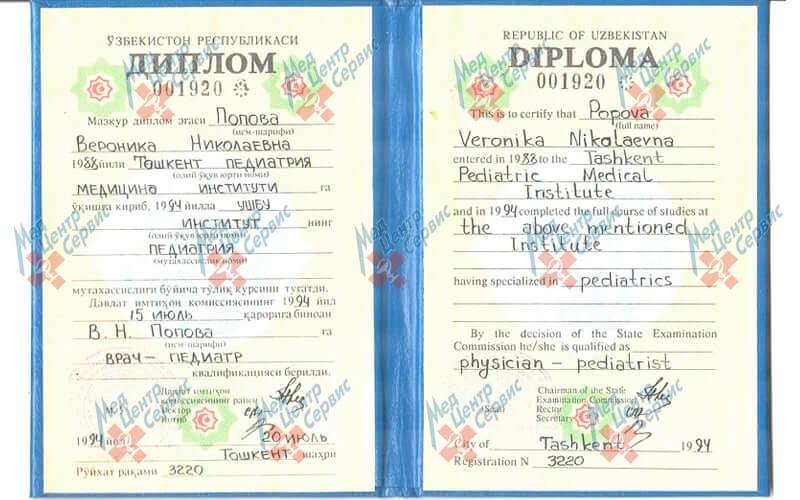 ЎЗБЕКИСТОН РЕСПУБЛИКАСИ
ДИПЛОМ
001920
Мазкур диплом эгаси Попова
(исм-шарифи)
Вероника Николаевна
1988 йили Тошкент педиатрия
(олий ўқув юрти номи)
медицина институти га
ўқишга кириб, 1994 йилда ушбу
институт нинг
(олий ўқув юрти номи)
педиатрия
(мутахассислик номи)
мутахассислиги бўйича тўлиқ курсини тугатди.
Давлат имтиҳон комиссиясининг 1994 йил
15 июль қарорига биноан
В. Н. Попова га
(исм-шарифи)
врач – педиатр
квалификацияси берилди.
Давлат имтиҳон
комиссиясининг раиси
Ректор
Котиб
1994 йил 20 июль
Тошкент шаҳри
Рўйхат рақами 3220
REPUBLIC OF UZBEKISTAN
DIPLOMA
001920
This is to certify that Popova
(full name)
Veronika Nikolaevna
entered in 1988 to the Tashkent
Pediatric Medical
Institute
and in 1994 completed the full course of studies at
the above mentioned
Institute
having specialized in pediatrics
By the decision of the State Examination
Commission he/she is qualified as
physician – pediatrist
Chairman of the State
Examination Commission
(Seal) Rector
Secretary
City of Tashkent 1994
Registration N 3220
Мед Центр Сервис 24